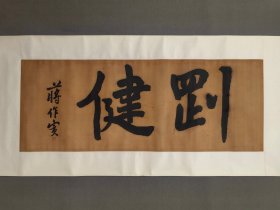 剛健
蔣作賓